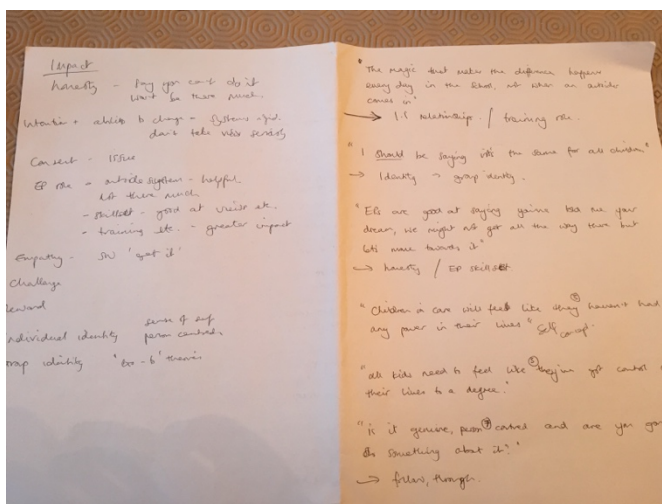 Impact
honesty - Say you can't do it
won't be there much.
Intention + ability to change - systems
don't take views seriously
Consent - issue
EP role - outside system - helpful
not there much
- skillset - good at views etc.
- training etc. - greater impact
Empathy - 'get it'
Challenge
Reward
individual identity sense of self
person centred.
group identity
"The magic that makes the difference happens
every day in the school not when an outsider
comes in"
→ 1:1 relationships / training role.
"I should be saying it's the same for all children"
→ Identity group identity.
"EPs are good at saying you've told me your
dream, we might not get all the way there but
let's move towards it"
→ honesty / EP skillset.
"Children in care will feel like they haven't had
any power in their lives" Self concept.
"all kids need to feel like they've got control
their lives to a degree."
"is it genuine, person centred and are you
do something about it?"
→ follow through.